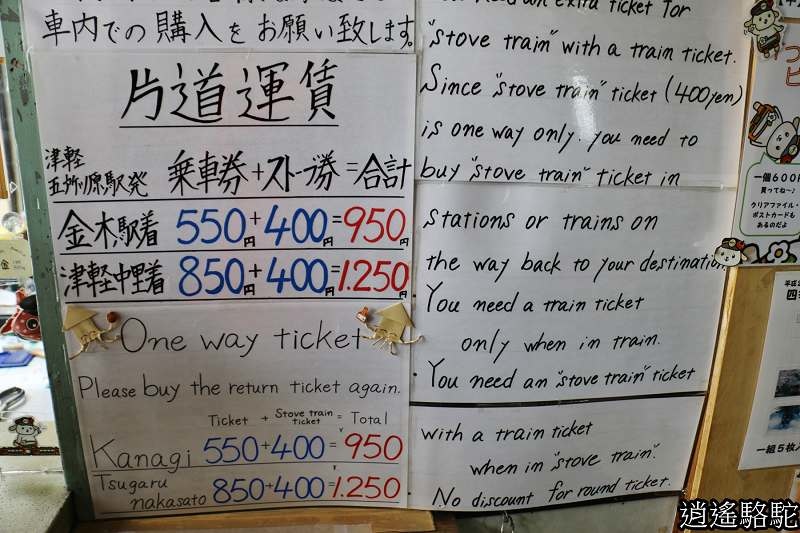 車内での購入をお願い致します。
片道運賃
津軽
五所川原駅発 乗車券+ストーブ券=合計
金木駅着 550円+400円=950円
津軽中里着 850円+400円=1.250円
One way ticket
Please buy the return ticket again.
Ticket + Stove train ticket = Total
Kanagi 550+400=950
Tsugaru
nakasato 850+400=1.250
an extra ticket for
"stove train" with a train ticket.
Since "stove train" ticket (400yen)
is one way only. you need to
buy "stove train" ticket in
stations or trains on
the way back to your destination.
You need a train ticket
only when in train.
You need am "stove train" ticket
with a train ticket
when in "stove train".
No discount for round ticket.
一個600
買ってね〜♪
クリアファイル・
ポストカードも
あるのだよ
平成
四
一組5枚
逍遙駱駝